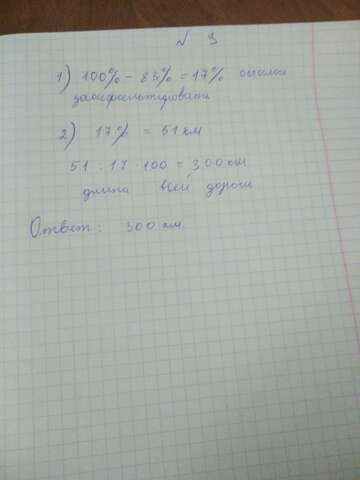 N 3
1) 100% - 83% = 17% осталось
заасфальтировать
2) 17% = 51 км
51 : 17 · 100 = 300 км
длина всей дороги
Ответ: 300 км